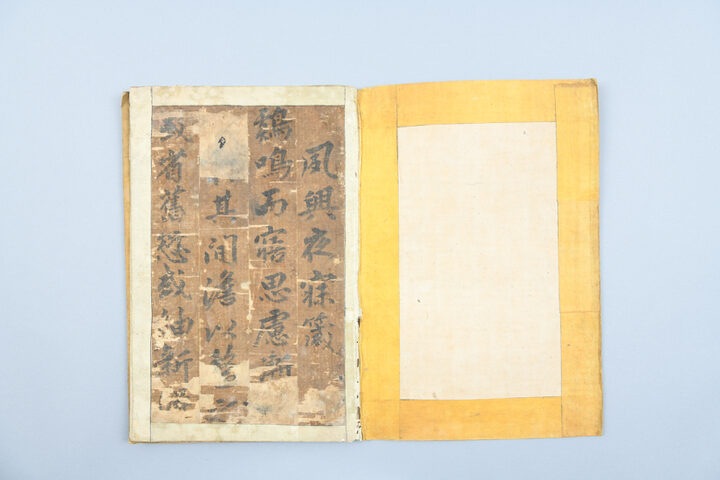 夙興夜寐箴
鷄鳴而寤思慮漸
其間澹以整之
或省舊愆或紬新